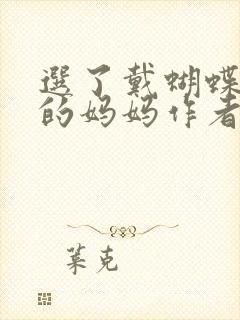 選了戴蝴蝶
的妈妈作者
莱克